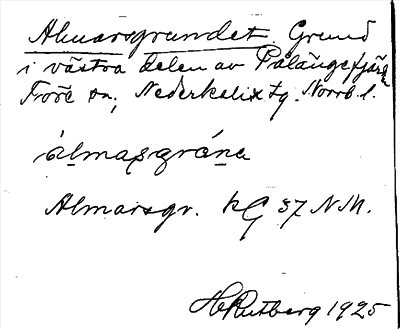 Almarsgrundet. Grund
i västra delen av Pålängefjärd
Töre sn, Nederkalix tg. Norrb. l.
álmasgrána
Almarsgr. KG 37 N.M.
H. Rutberg 1925